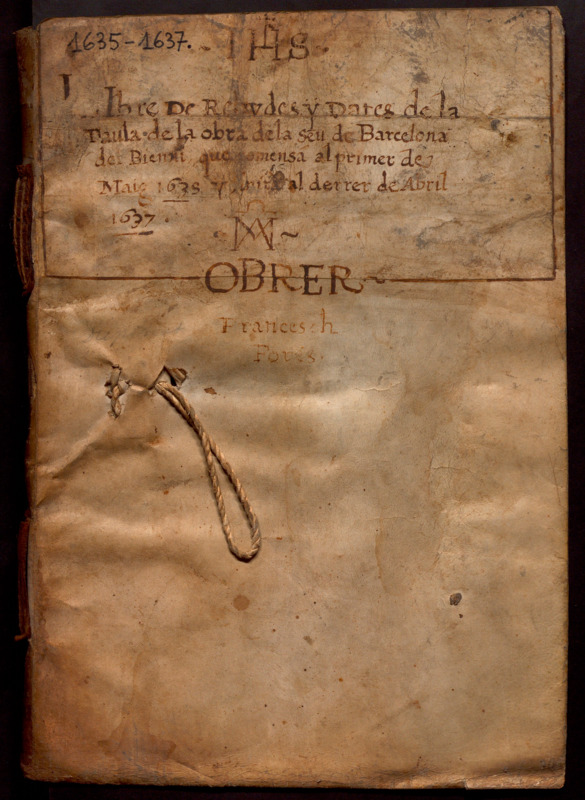 1635-1637.
IHS
Llibre De Rebudes y Dates de la
Taula de la obra de la Seu de Barcelona
del Bienni que comensa al primer de
Maig 1635 y al derrer de Abril
1637.
OBRER
Francesch